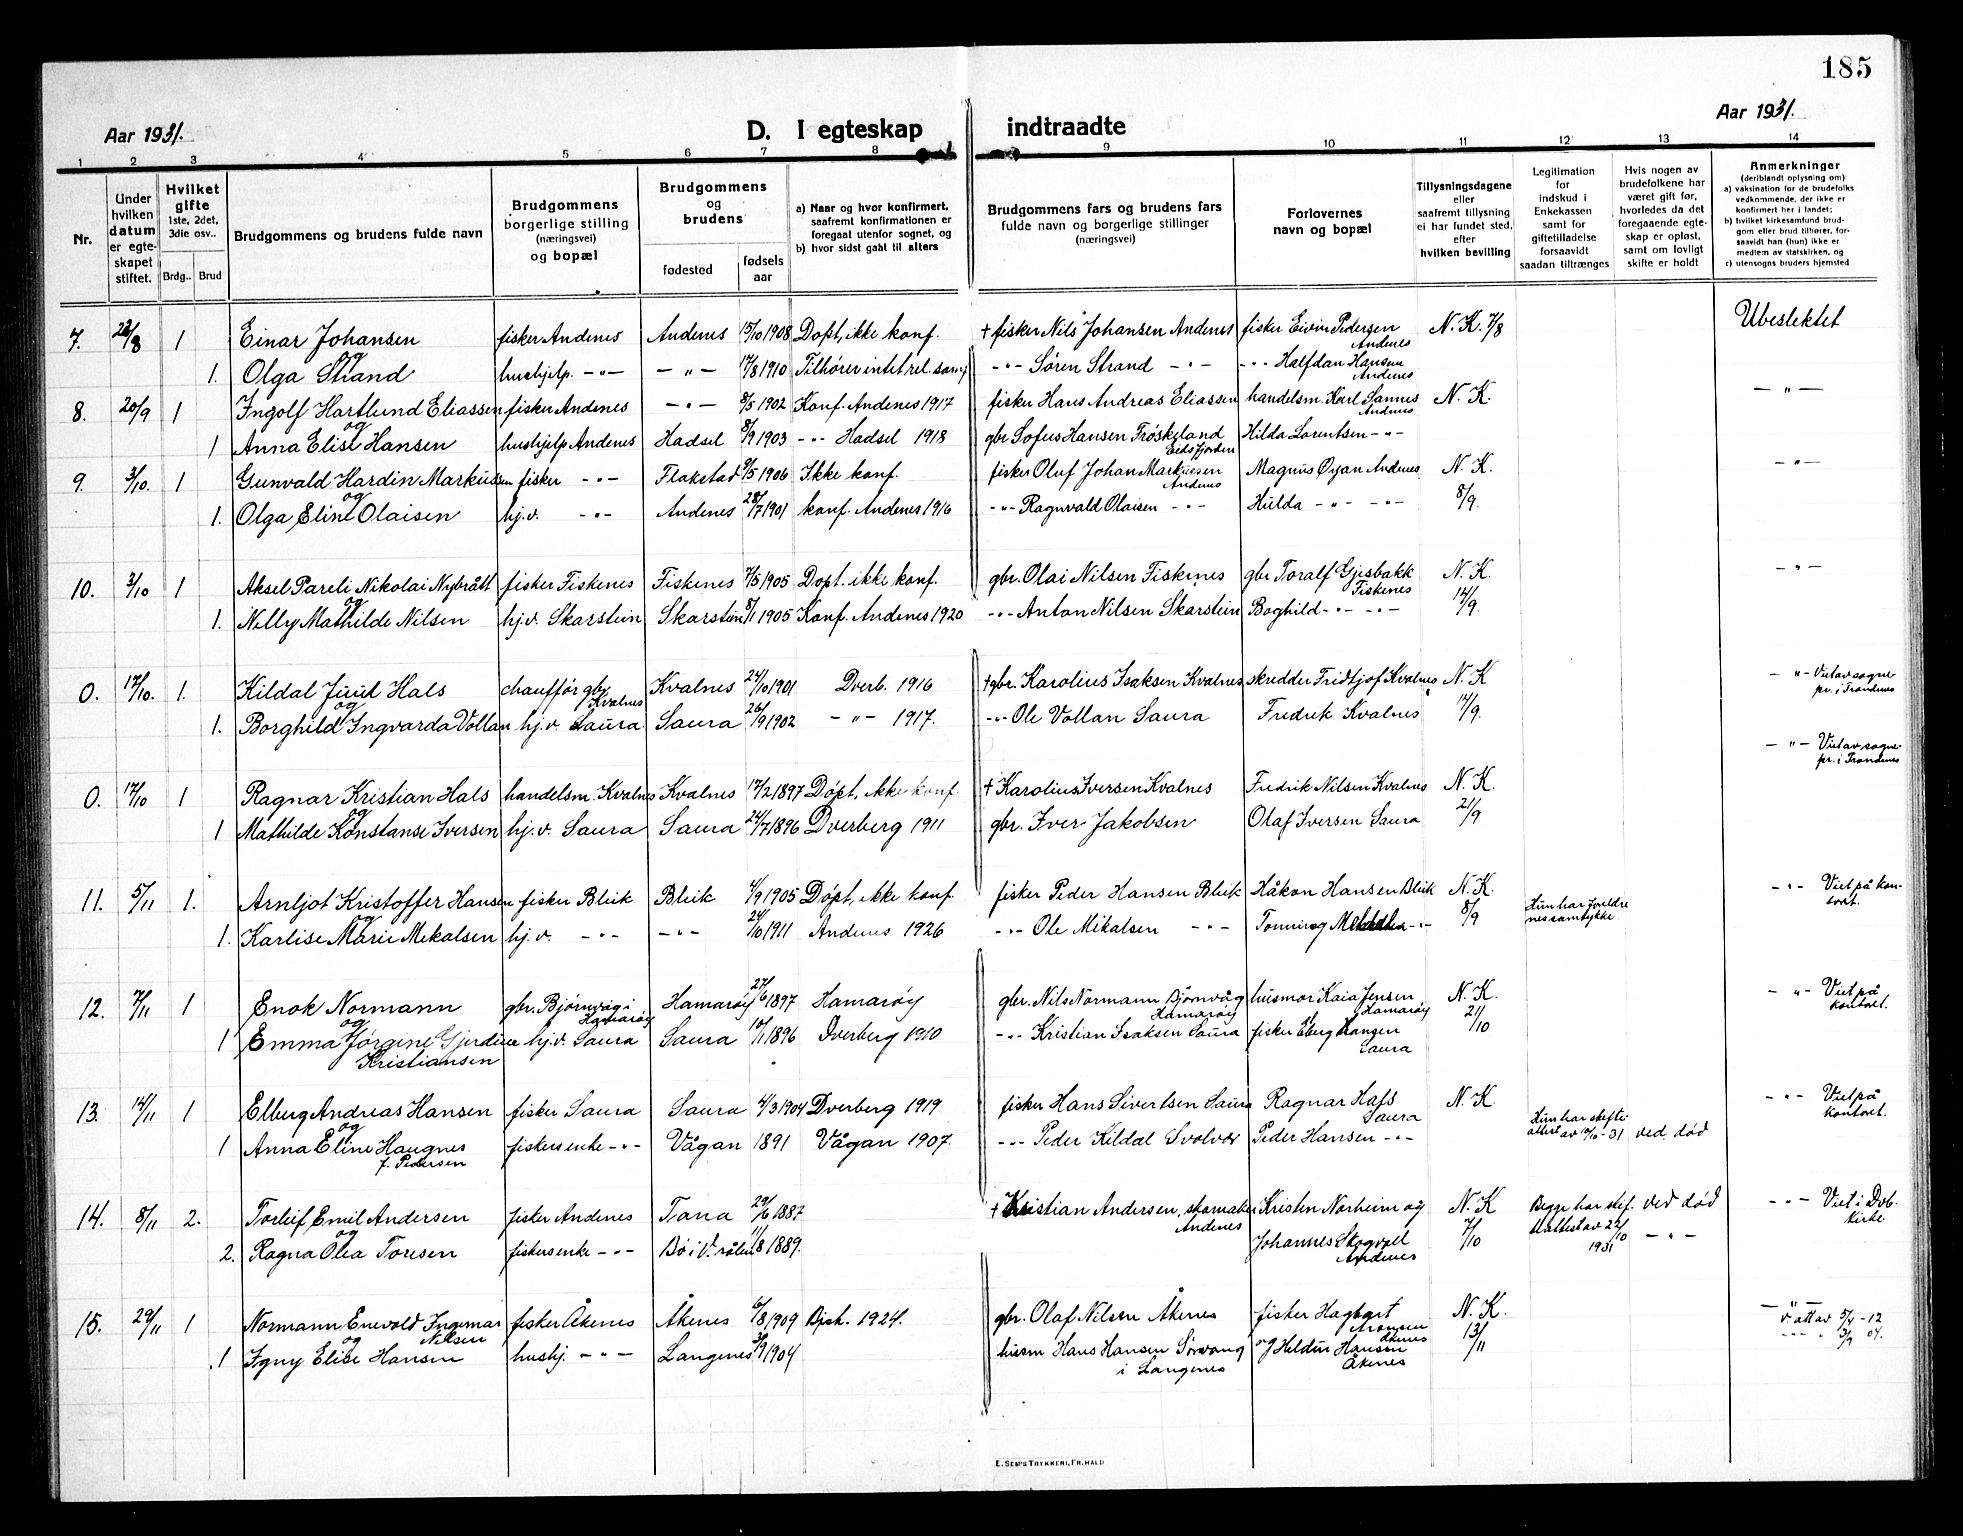 185
Aar 1931.
D. I egteskap indtraadte
Aar 1931.
1 2 3 4 5 6 7 8 9 10 11 12 13 14
Nr.
Under hvilken datum er egteskapet stiftet.
Hvilket gifte 1ste, 2det, 3die osv..
Brdg.. Brud
Brudgommens og brudens fulde navn
Brudgommens borgerlige stilling (næringsvei) og bopæl
Brudgommens og brudens
fødested
fødsels aar
a) Naar og hvor konfirmert, saafremt konfirmationen er foregaat utenfor sognet, og
b) hvor sidst gaat til alters
Brudgommens fars og brudens fars fulde navn og borgerlige stillinger (næringsvei)
Forlovernes navn og bopæl
Tillysningsdagene eller saafremt tillysning ei har fundet sted, efter hvilken bevilling
Legitimation for indskud i Enkekassen samt for giftetilladelse forsaavidt saadan tiltrænges
Hvis nogen av brudefolkene har været gift før, hvorledes da det foregaaende egteskap er opløst, samt om lovligt skifte er holdt
Anmerkninger
(deriblandt oplysning om)
a) vaksination for de brudefolks vedkommende, der ikke er konfirmert her i landet;
b) hvilket kirkesamfund brudgom eller brud tilhører, forsaavidt han (hun) ikke er medlem av statskirken, og
c) utensogns bruders hjemsted
7. 22/8 1 Einar Johansen fisker Andenes Andenes 15/10 1908 Døpt, ikke konf. + fisker Nils Johansen Andenes fisker Eivin Pedersen Andenes N. K. 7/8 Ubeslektet
og
1. Olga Strand hushjelp. -"- -"- 17/8 1910 Tilhører intet rel. samf -"- Søren Strand -"- -"- Halfdan Hansen Andenes
8. 20/9 1 Ingolf Hartlund Eliassen fisker Andenes -"- 8/5 1902 Konf. Andenes 1917 fisker Hans Andreas Eliassen handelsm. Karl Sannes Andenes N. K. -"-
og
1 Anna Elise Hansen hushjelp Andenes Hadsel 8/9 1903 -"- Hadsel 1918 gbr Sofus Hansen Frøskeland Eidsfjorden Hilda Lorentsen -"-
9. 3/10. 1 Gunvald Hardin Markussen fisker -"- Flakstad 9/5 1906 Ikke konf. fisker Oluf Johan Markussen Andenes Magnus Oyan Andenes N. K. -"-
og
1. Olga Eline Olaisen hj.v. -"- Andenes 28/7 1901 konf. Andenes 1916 -"- Ragnvald Olaisen -"- Hulda -"- -"- 8/9.
10. 3/10 1 Aksel Pareli Nikolai Nybrått fisker Fiskenes Fiskenes 7/5 1905 Døpt. ikke konf. gbr. Olai Nilsen Fiskenes gbr Toralf Gjesbakk Fiskenes N. K. -"-
og
1. Nelly Mathilde Nilsen hj.v. Skarstein Skarstein 8/1 1905 Konf. Andenes 1920 -"- Anton Nilsen Skarstein Boghild -"- -"- 14/9.
0. 17/10. 1. Kildal Juul Hals chauffør gbr. Kvalnes Kvalnes 24/10 1901 Dverb. 1916 + gbr. Karolius Isaksen Kvalnes skredder Fridtjof Kvalnes N. K -"- Viet av sogne pr. i Trondenes
og
1. Borghild Ingvarda Vollan hj.v. Saura Saura 26/9 1902 -"- 1917. -"- Ole Vollan Saura Fredrik Kvalnes 17/9.
-"- Viet av sogne pr. i Trondenes
0. 17/10 1 Ragnar Kristian Hals handelsm. Kvalnes Kvalnes 17/2 1897 Døpt, ikke konf. + Karolius Iversen Kvalnes Fredrik Nilsen Kvalnes N. K.
og
1 Mathilde Konstanse Iversen hj.v. Saura Saura 24/7 1896 Dverberg 1911 gbr. Iver Jakobsen Olaf Iversen Saura 21/9
11. 5/11 1. Arnljot Kristoffer Hansen fisker Bleik Bleik 4/9 1905 Døpt, ikke konf. fisker Peder Hansen Bleik Håkon Hansen Bleik N. K. Hun har foreldrenes samtykke. -"- Viet på kontort.
og
1. Karlise Marie Mekalsen hj.v. -"- -"- 24/10 1911 Andenes 1926 -"- Ole Mikalsen -"- 8/9
12. 7/11 1 Enok Normann gbr. Bjørnvåg i Hamarøy Hamarøy 27/6 1897 Hamarøy gbr. Nils Normann Bjørnvåg Hamarøy husmor Kaia Jensen Hamarøy N. K. -"- Viet på kontoret.
og
1 Emma Jørgine Gjerdine Kristiansen hj.v. Saura Saura 10/1 1896 Dverberg 1910 -"- Kristian Isaksen Saura fisker Eberg Hangen Saura 21/10
13. 14/11 1 Elberg Andreas Hansen fisker Saura Saura 4/3 1904 Dverberg 1919 fisker Hans Sivertsen Saura Ragnar Hals Saura N. K -"- Viet på kontoret.
og
1 Anna Eline Haugnes f. Pedersen fiskersenke -"- Vågan 1891 Vågan 1907. -"- Peder Kildal Svolvær Peder Hansen -"- Hun har skifteattest av 10/10-31 ved død
14. 8/11 2. Torleif Emil Andersen fisker Andenes Tana 29/6 1887 + Kristian Andersen, skomaker Andenes Kristen Norheim og N. K Begge har skifteattest av 22/10 1931 ved død -"- Viet i Dvb. kirke
og
2. Ragna Olea Toresen fiskersenke -"- Bø i V.rålen 11/8 1889. Johannes Skogvoll Andenes 7/10 -"-
15. 29/11 1 Normann Enevold Ingemar Nilsen fisker Åkenes Åkenes 6/8 1909 Bjsk. 1924. gbr. Olaf Nilsen Åkenes fisker Hagbart Aronsen Åkenes N. K. -"- v. att av 5/4-12
og
1 Igny Elise Hansen hushj. -"- Langenes 3/9 1904 husm Hans Hansen Sørvang i Langenes Hansen Åkenes 13/11 -"- 3/9 04.
E. SEM'S TRYKKERI, FR.HALD